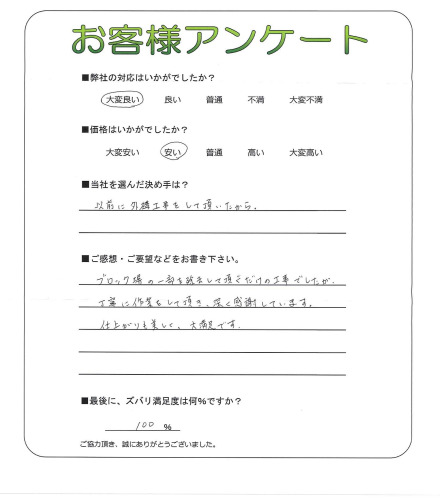 お客様アンケート
■弊社の対応はいかがでしたか？
大変良い 良い 普通 不満 大変不満
■価格はいかがでしたか？
大変安い 安い 普通 高い 大変高い
■当社を選んだ決め手は？
以前に外構工事をして頂いたから。
■ご感想・ご要望などをお書き下さい。
ブロック塀の一部を撤去して頂くだけの工事でしたが、
丁寧に作業をして頂き、深く感謝しています。
仕上がりも美しく、大満足です。
■最後に、ズバリ満足度は何%ですか？
100 %
ご協力頂き、誠にありがとうございました。